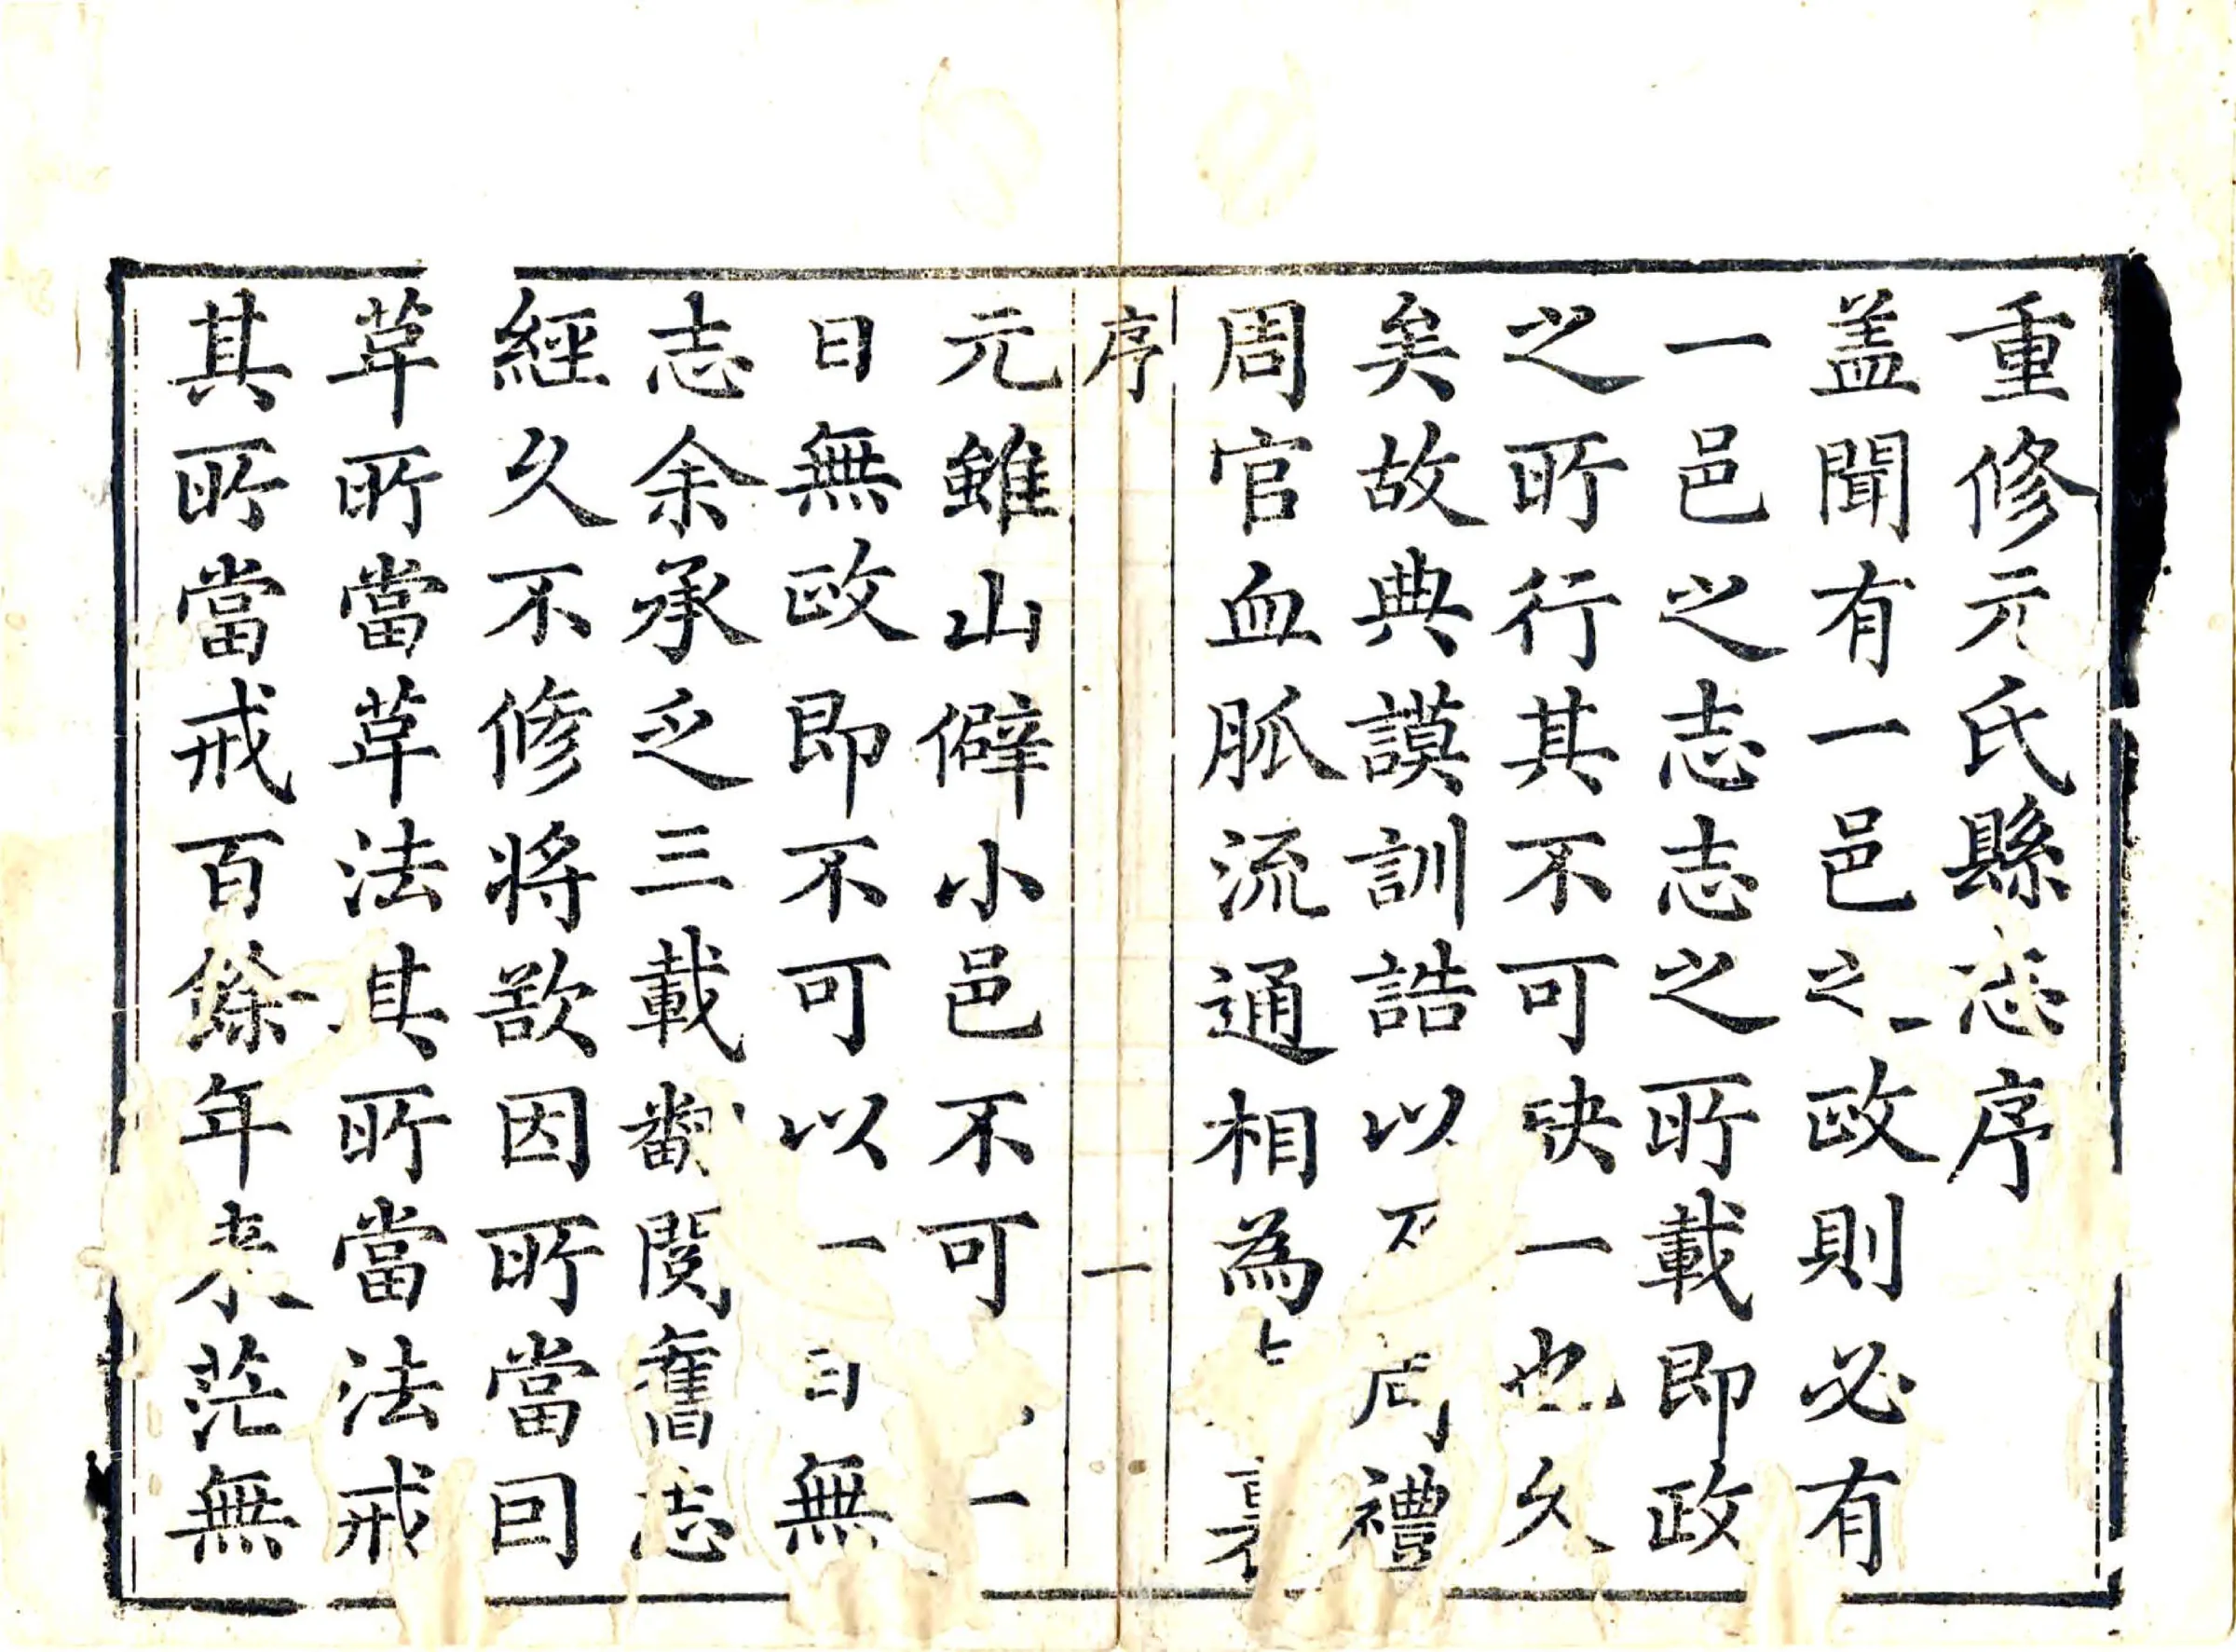 重修元氏縣志序
盖聞有一邑之政則必有
一邑之志志之所載即政
之所行其不可缺一也久
矣故典謨訓誥以周禮
周官血脈流通相為
序 一
元雖山僻小邑不可一
日無政即不可以一日無
志余承乏三載繙閱舊志
經久不修將欲因所當回
革所當革法其所當法戒
其所當戒百餘年來茫無